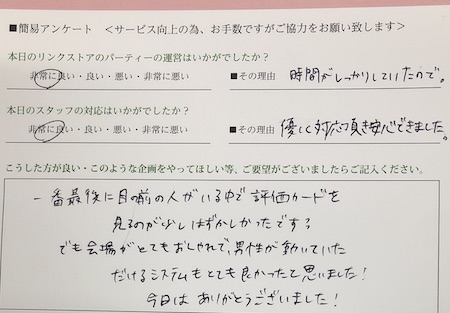 ■簡易アンケート ＜サービス向上の為、お手数ですがご協力をお願い致します＞
本日のリンクストアのパーティーの運営はいかがでしたか？
非常に良い・良い・悪い・非常に悪い ■その理由 時間がしっかりしていたので。
本日のスタッフの対応はいかがでしたか？
非常に良い・良い・悪い・非常に悪い ■その理由 優しく対応頂き安心できました。
こうした方が良い・このような企画をやってほしい等、ご要望がございましたらご記入ください。
一番最後に目の前の人がいる中で評価カードを
見るのが少しはずかしかったです？
でも会場がとてもおしゃれで、男性が動いていた
だけるシステムもとても良かったと思いました！
今日はありがとうございました！